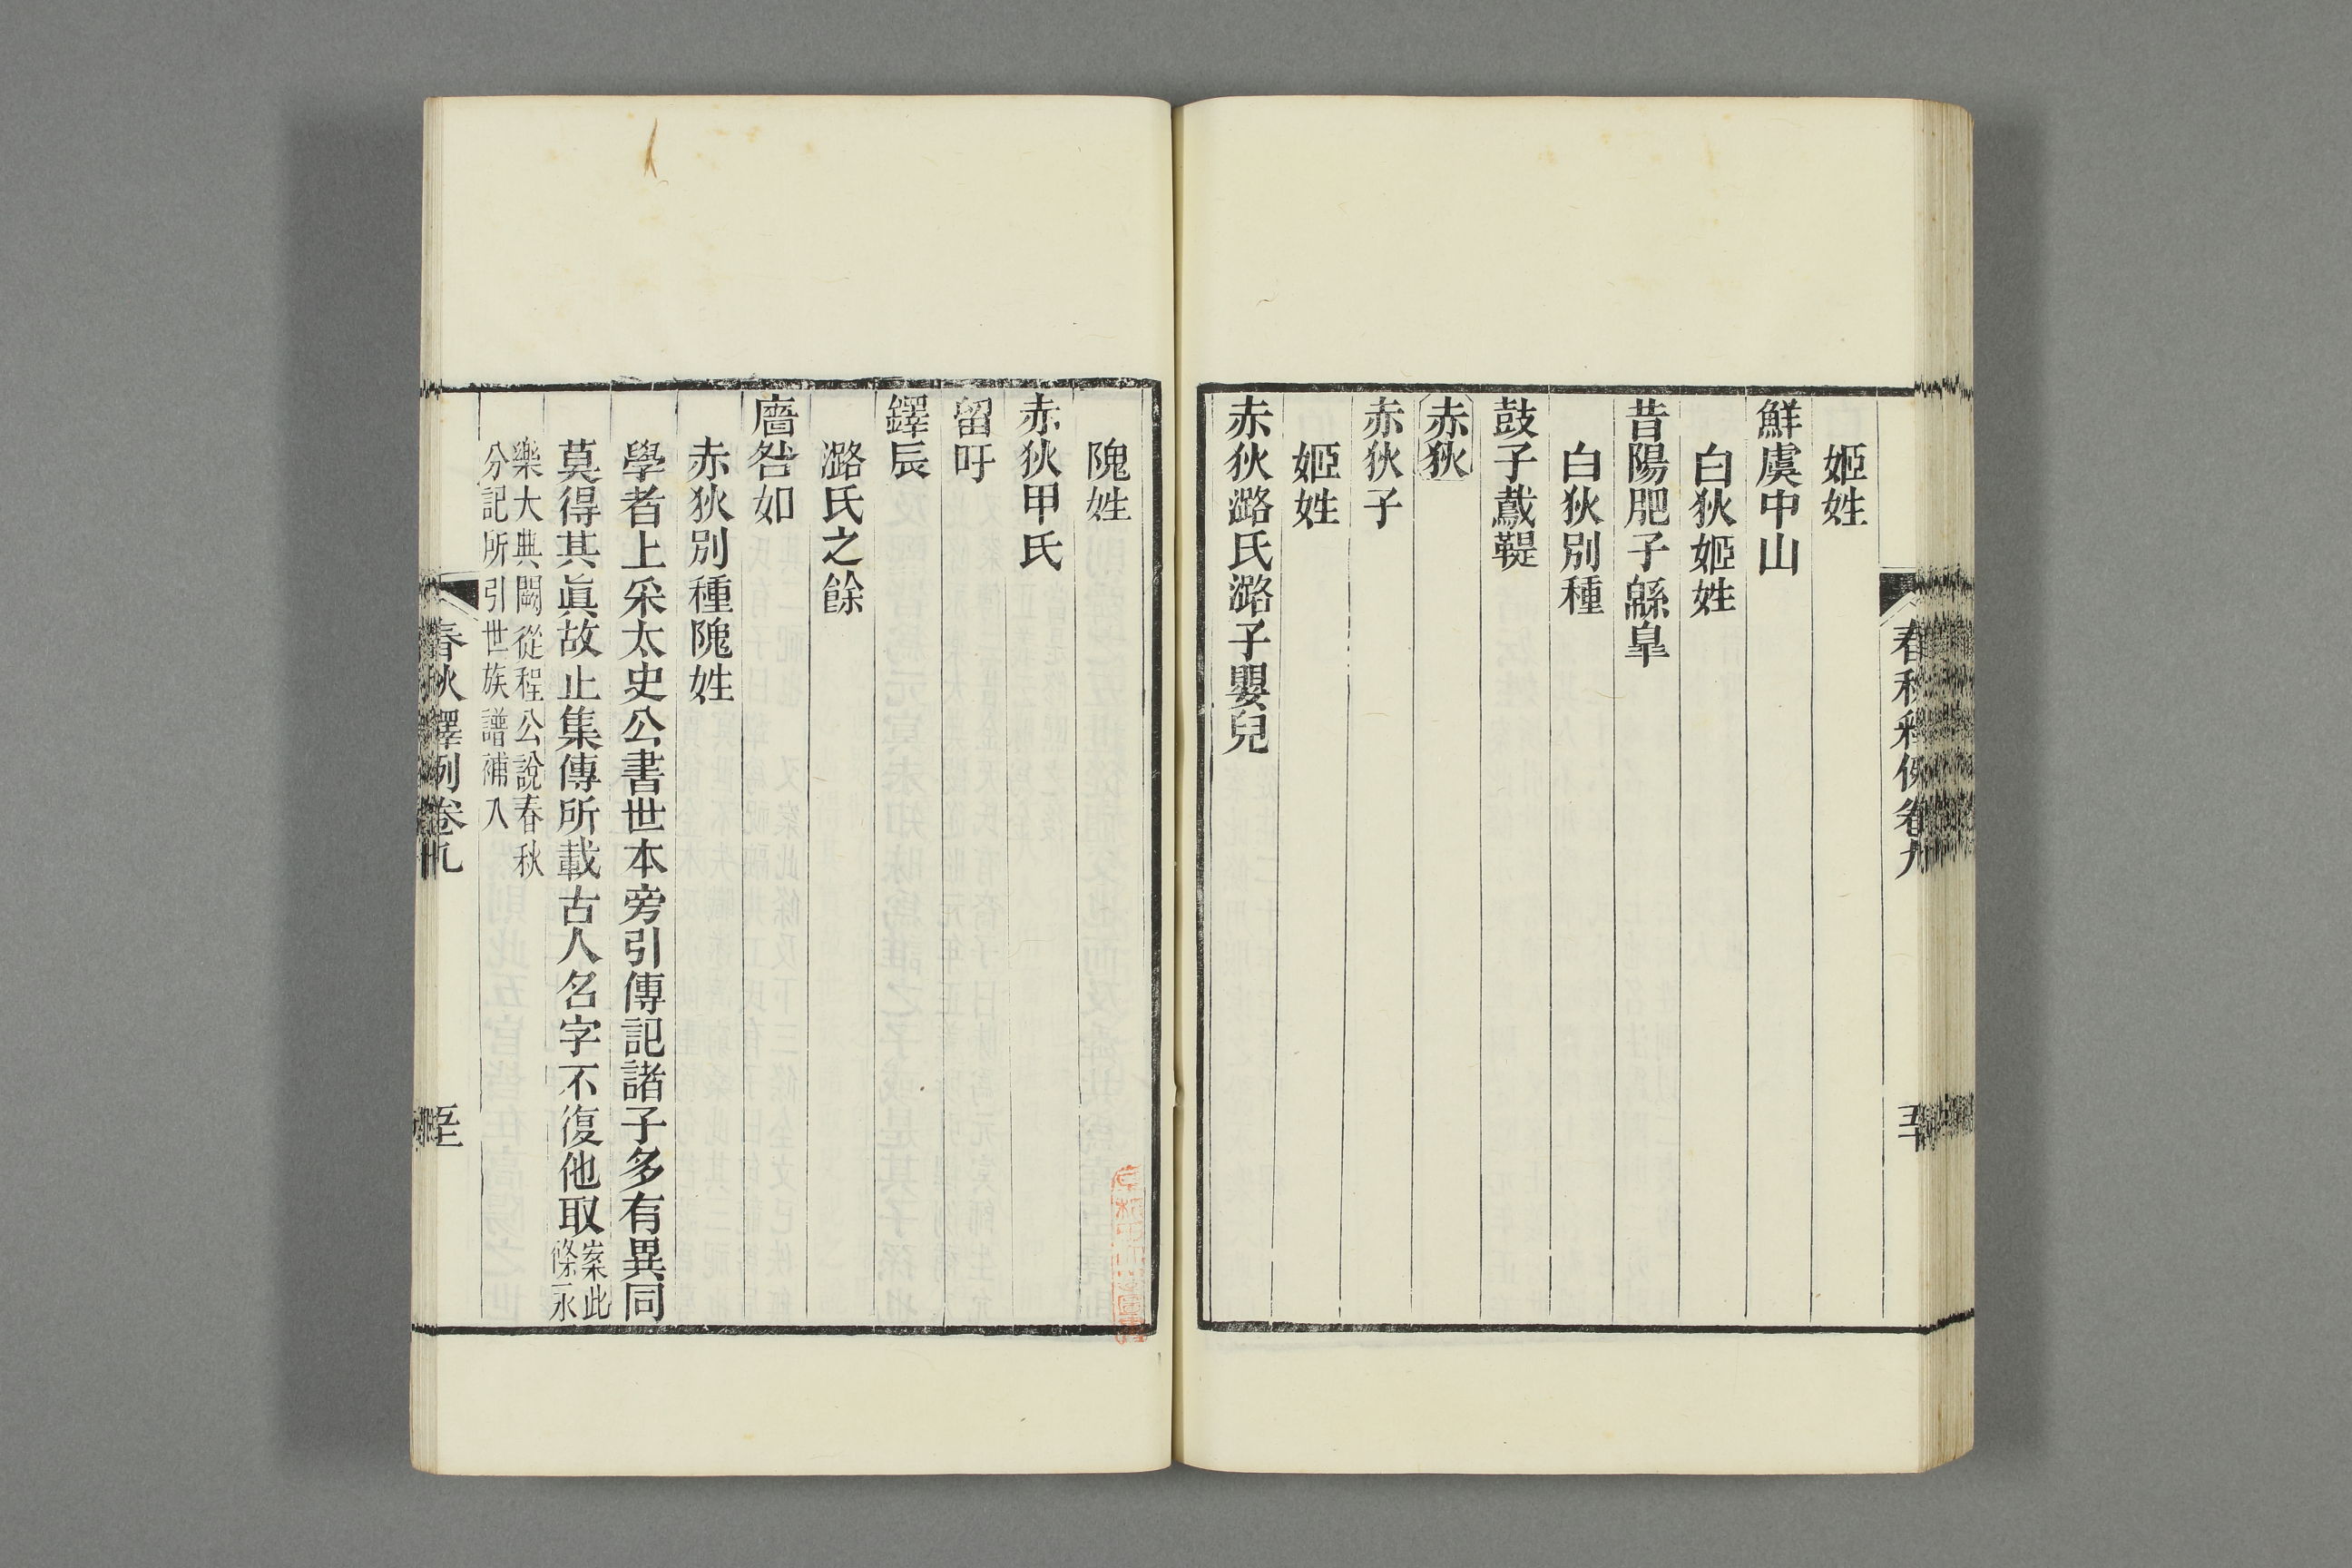 姬姓
鮮虞中山
白狄姬姓
昔陽肥子緜臯
白狄別種
鼓子鳶鞮
赤狄
赤狄子
姬姓
赤狄潞氏潞子嬰兒
隗姓
赤狄甲氏
留吁
鐸辰
潞氏之餘
廧咎如
赤狄別種隗姓
學者上采太史公書世本旁引傳記諸子多有異同
莫得其眞故止集傳所載古人名字不復他取案此
條永
樂大典闕從程公說春秋
分記所引世族譜補入
春秋釋例卷九